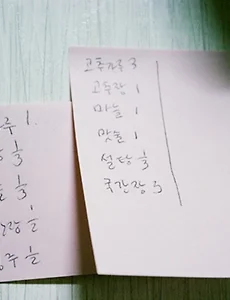 고추가루 3
고추장 1
마늘 1
맛술 1
설탕 ⅓
국간장 5
주 1.
⅓
⅓
간장 ½
주 ½